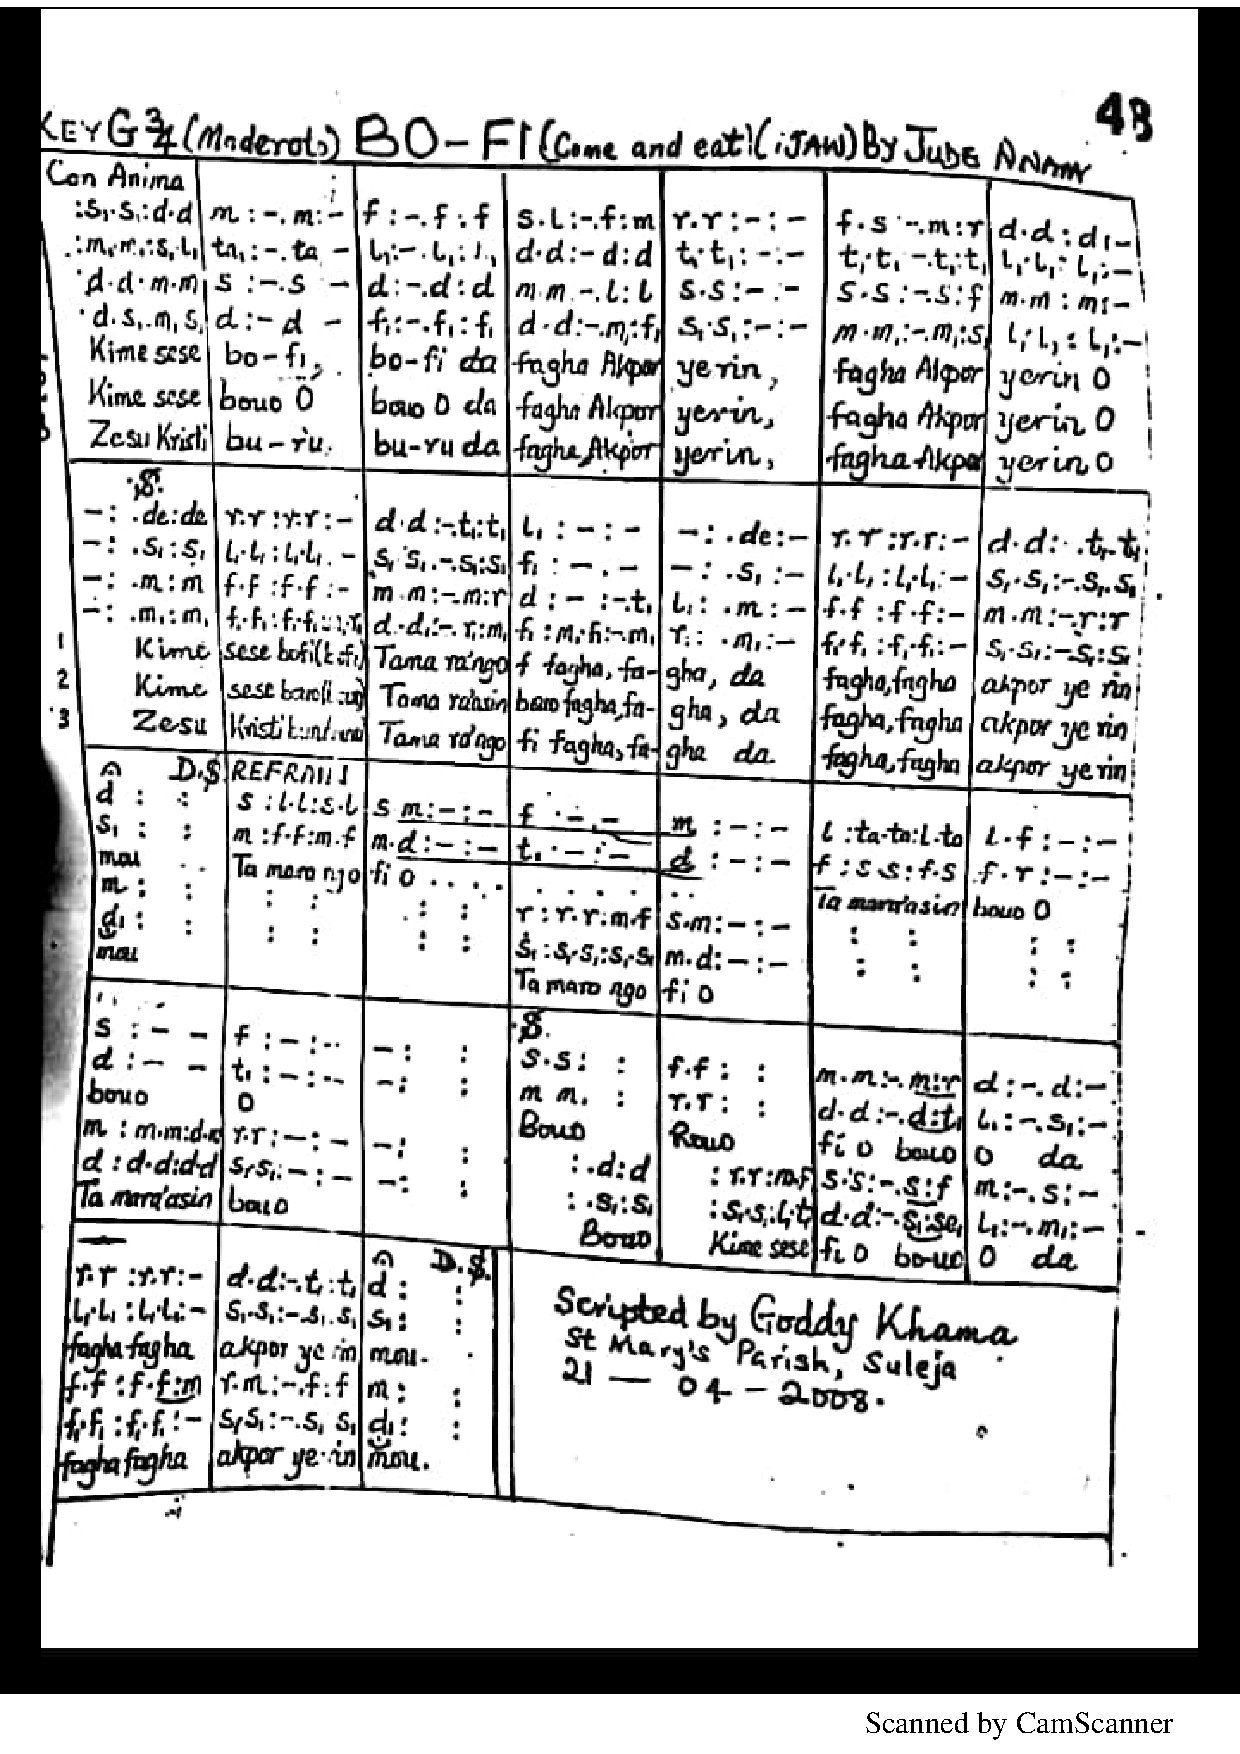 48
KEY G 3/4 (Moderato) BO-FI (Come and eat!(iJAW) BY JUDE ANAAM
Con Anima
:s₁.s₁:d.d | m:-.m:- | f:-.f:f | s.l:-.f:m | r.r:-:- | f.s:-.m:r | d.d:d:-
:m₁.m₁:s₁.l₁ | ta₁:-.ta₁:- | l₁:-.l₁:l₁ | d.d:-.d:d | t₁.t₁:-:- | t₁.t₁:-.t₁:t₁ | l₁.l₁:l₁:-
d.d:m.m | s:-.s:- | d:-.d:d | m.m:-.l:l | s.s:-:- | s.s:-.s:f | m.m:m:-
d.s₁:m₁.s₁ | d:-.d:- | f₁:-.f₁:f₁ | d.d:-.m₁:f₁ | s₁.s₁:-:- | m₁.m₁:-.m₁:s₁ | l₁.l₁:l₁:-
Kime sese | bo-fi, | bo-fi da | fagha Akpor | yerin, | fagha Akpor | yerin O
Kime sese | bouo O | bouo O da | fagha Akpor | yerin, | fagha Akpor | yerin O
Zesu Kristi | bu-ru. | bu-ru da | fagha Akpor | yerin, | fagha Akpor | yerin O
S.
-:.de:de | r.r:r.r:- | d.d:-.t₁:t₁ | l₁:-:- | -:.de:- | r.r:r.r:- | d.d:-.t₁.t₁
-:.s₁:s₁ | l₁.l₁:l₁.l₁:- | s₁.s₁:-.s₁:s₁ | f₁:-:- | -:.s₁:- | l₁.l₁:l₁.l₁:- | s₁.s₁:-.s₁.s₁
-:.m:m | f.f:f.f:- | m.m:-.m:r | d:-:-.t₁ | l₁:.m:- | f.f:f.f:- | m.m:-.r:r
-:.m₁:m₁ | d.d₁:-.r₁:m₁ | f₁:m₁.f₁:-.m₁ | r₁:.m₁:- | f₁.f₁:f₁.f₁:- | s₁.s₁:-.s₁:s₁
1 Kime | sese bofi | Tama ra'ngo | f fagha, fa- | gha, da | fagha, fagha | akpor ye rin
2 Kime | sese | Tama ra'asin | bouo fagha, fa- | gha, da | fagha, fagha | akpor ye rin
3 Zesu | Kristi | Tama ra'ngo | fi fagha, fa- | gha da | fagha, fagha | akpor ye rin
D.S. REFRAIN
d : : | s:l.l:s.l | s.m:-:- | f:-:- | m:-:- | l:ta.ta:l.ta | l.f:-:-
s₁ : : | m:f.f:m.f | m.d:-:- | t₁:-:- | d:-:- | f:s.s:f.s | f.r:-:-
mou | Ta mara ngo | fi O . . . . | Ta mara'asin | bouo O
m : : | : : | : : | r:r.r:m.f | s.m:-:- | : : | : :
d₁ : : | : : | : : | s₁:s₁.s₁:s₁.s₁ | m.d:-:- | : : | : :
mou | Ta mara ngo | fi O
S.
s:-:- | f:-:- | -: : | s.s: : | f.f: : | m.m:-.m:r | d:-.d:-
d:-:- | t₁:-:- | -: : | m.m: : | r.r: : | d.d:-.d:t₁ | l₁:-.s₁:-
bouo | O | Bouo | Rouo | fi O bouo | O da
m:m.m:d.d | r.r:-:- | -: : | :.d:d | :r.r:m.f | s.s:-.s:f | m:-.s:-
d:d.d:d.d | s₁.s₁:-:- | -: : | :.s₁:s₁ | :s₁.s₁:l₁.t₁ | d.d:-.s₁:se₁ | l₁:-.m₁:-
Ta mara'asin | bouo | Bouo | Kime sese | fi O bouo | O da
D.S.
r.r:r.r:- | d.d:-.t₁:t₁ | d: :
l₁.l₁:l₁.l₁:- | s₁.s₁:-.s₁.s₁ | s₁: :
fagha fagha | akpor ye rin | mou.
f.f:f.f:m | r.m:-.f:f | m: :
f₁.f₁:f₁.f₁:- | s₁.s₁:-.s₁.s₁ | d₁: :
fagha fagha | akpor ye rin | mou.
Scripted by Goddy Khama
St Mary's Parish, Suleja
21 — 04 - 2008.
Scanned by CamScanner